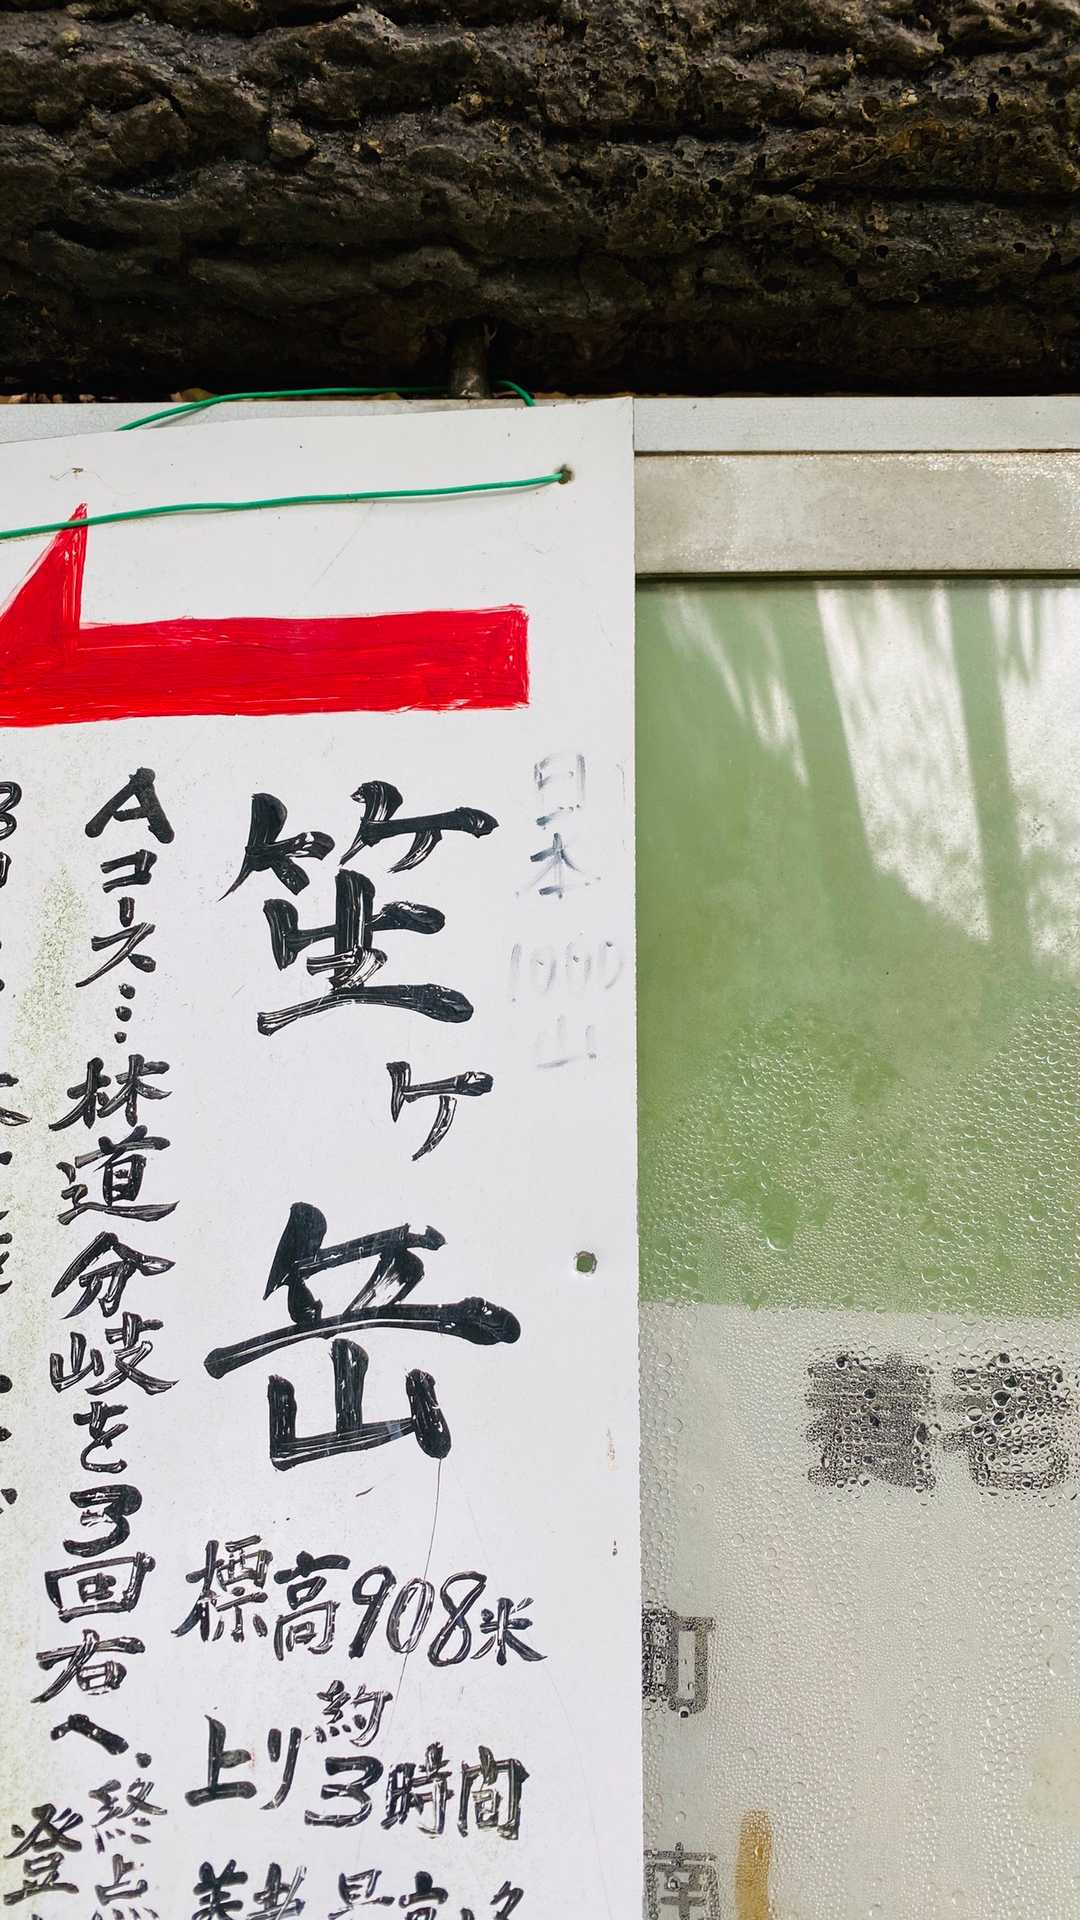 日本1000山
笙ヶ岳
標高908米
約
上り3時間
Aコース…林道分岐を3回右へ、終点
登
養老
南